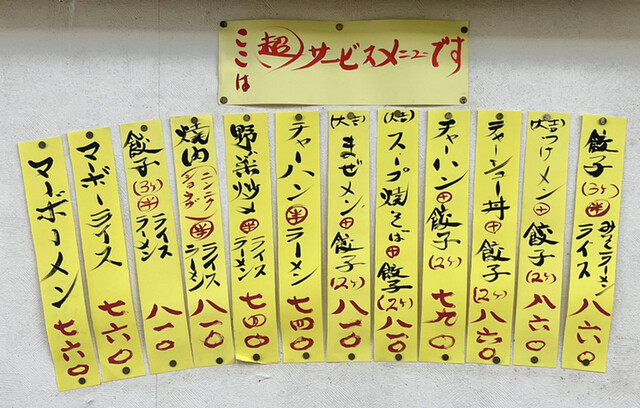 ここは超サービスメニューです
餃子(3ケ)半みそラーメンライス八六〇
(大吉)つけメン⊕餃子(2ケ)八六〇
チャーシュー丼⊕餃子(2ケ)八六〇
チャーハン⊕餃子(2ケ)七九〇
(大吉)スープ焼そば⊕餃子(2ケ)八一〇
(大吉)まぜメン⊕餃子(2ケ)八一〇
チャーハン半ラーメン七四〇
野菜炒メ半ライスラーメン七四〇
焼肉(ニンニクショウガ)半ライスラーメン八一〇
餃子(3ケ)半ライスラーメン八一〇
マーボーライス七六〇
マーボーメン七六〇